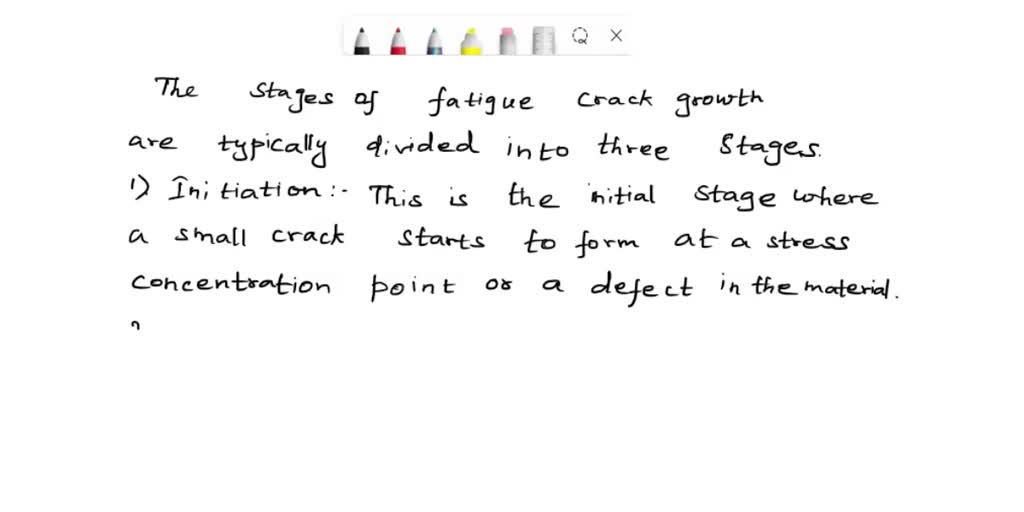 The stages of fatigue crack growth
are typically divided into three stages.
1) Initiation:- This is the initial stage where
a small crack starts to form at a stress
concentration point or a defect in the material.